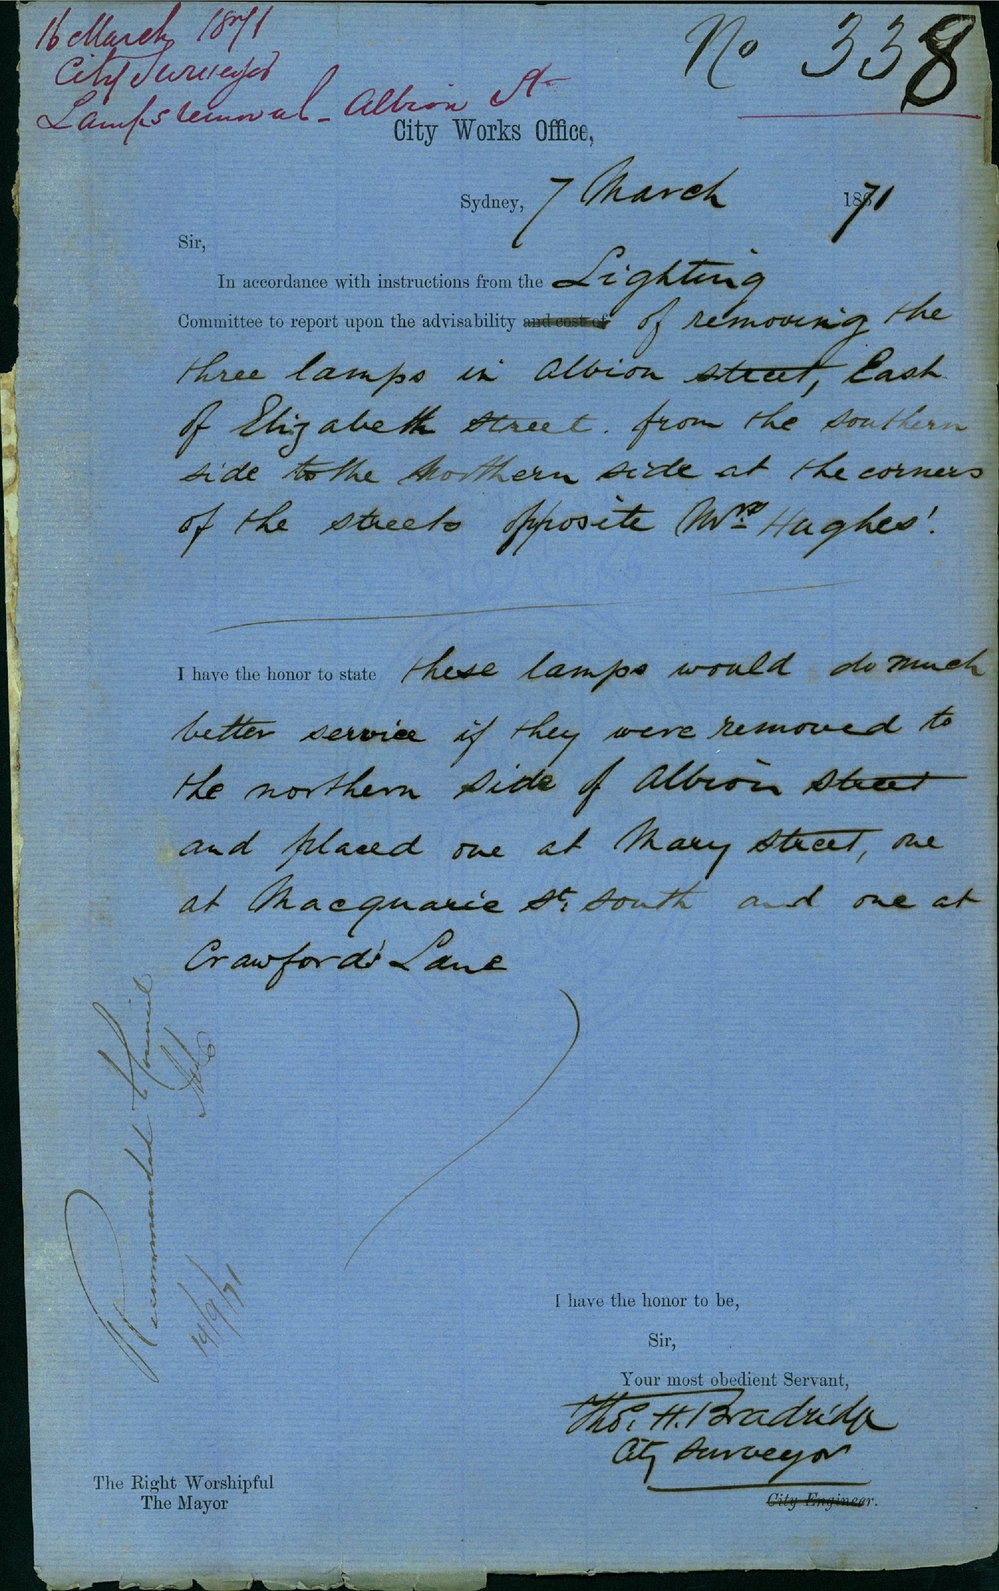 16 March 1871
City Surveyor
Lamps removal - Albion St
No 338
City Works Office,
Sydney, 7 March 1871
Sir,
In accordance with instructions from the Lighting
Committee to report upon the advisability and cost of of removing the
three lamps in Albion street, East
of Elizabeth street. from the southern
side to the Northern side at the corners
of the streets opposite Mrs Hughes'.
I have the honor to state these lamps would do much
better service if they were removed to
the northern side of Albion street
and placed one at Mary street, one
at Macquarie St. south and one at
Crawfords Lane
Recommended to Council
I have the honor to be,
Sir,
Your most obedient Servant,
Thos. H. Bradridge
City Surveyor
City Engineer.
The Right Worshipful
The Mayor